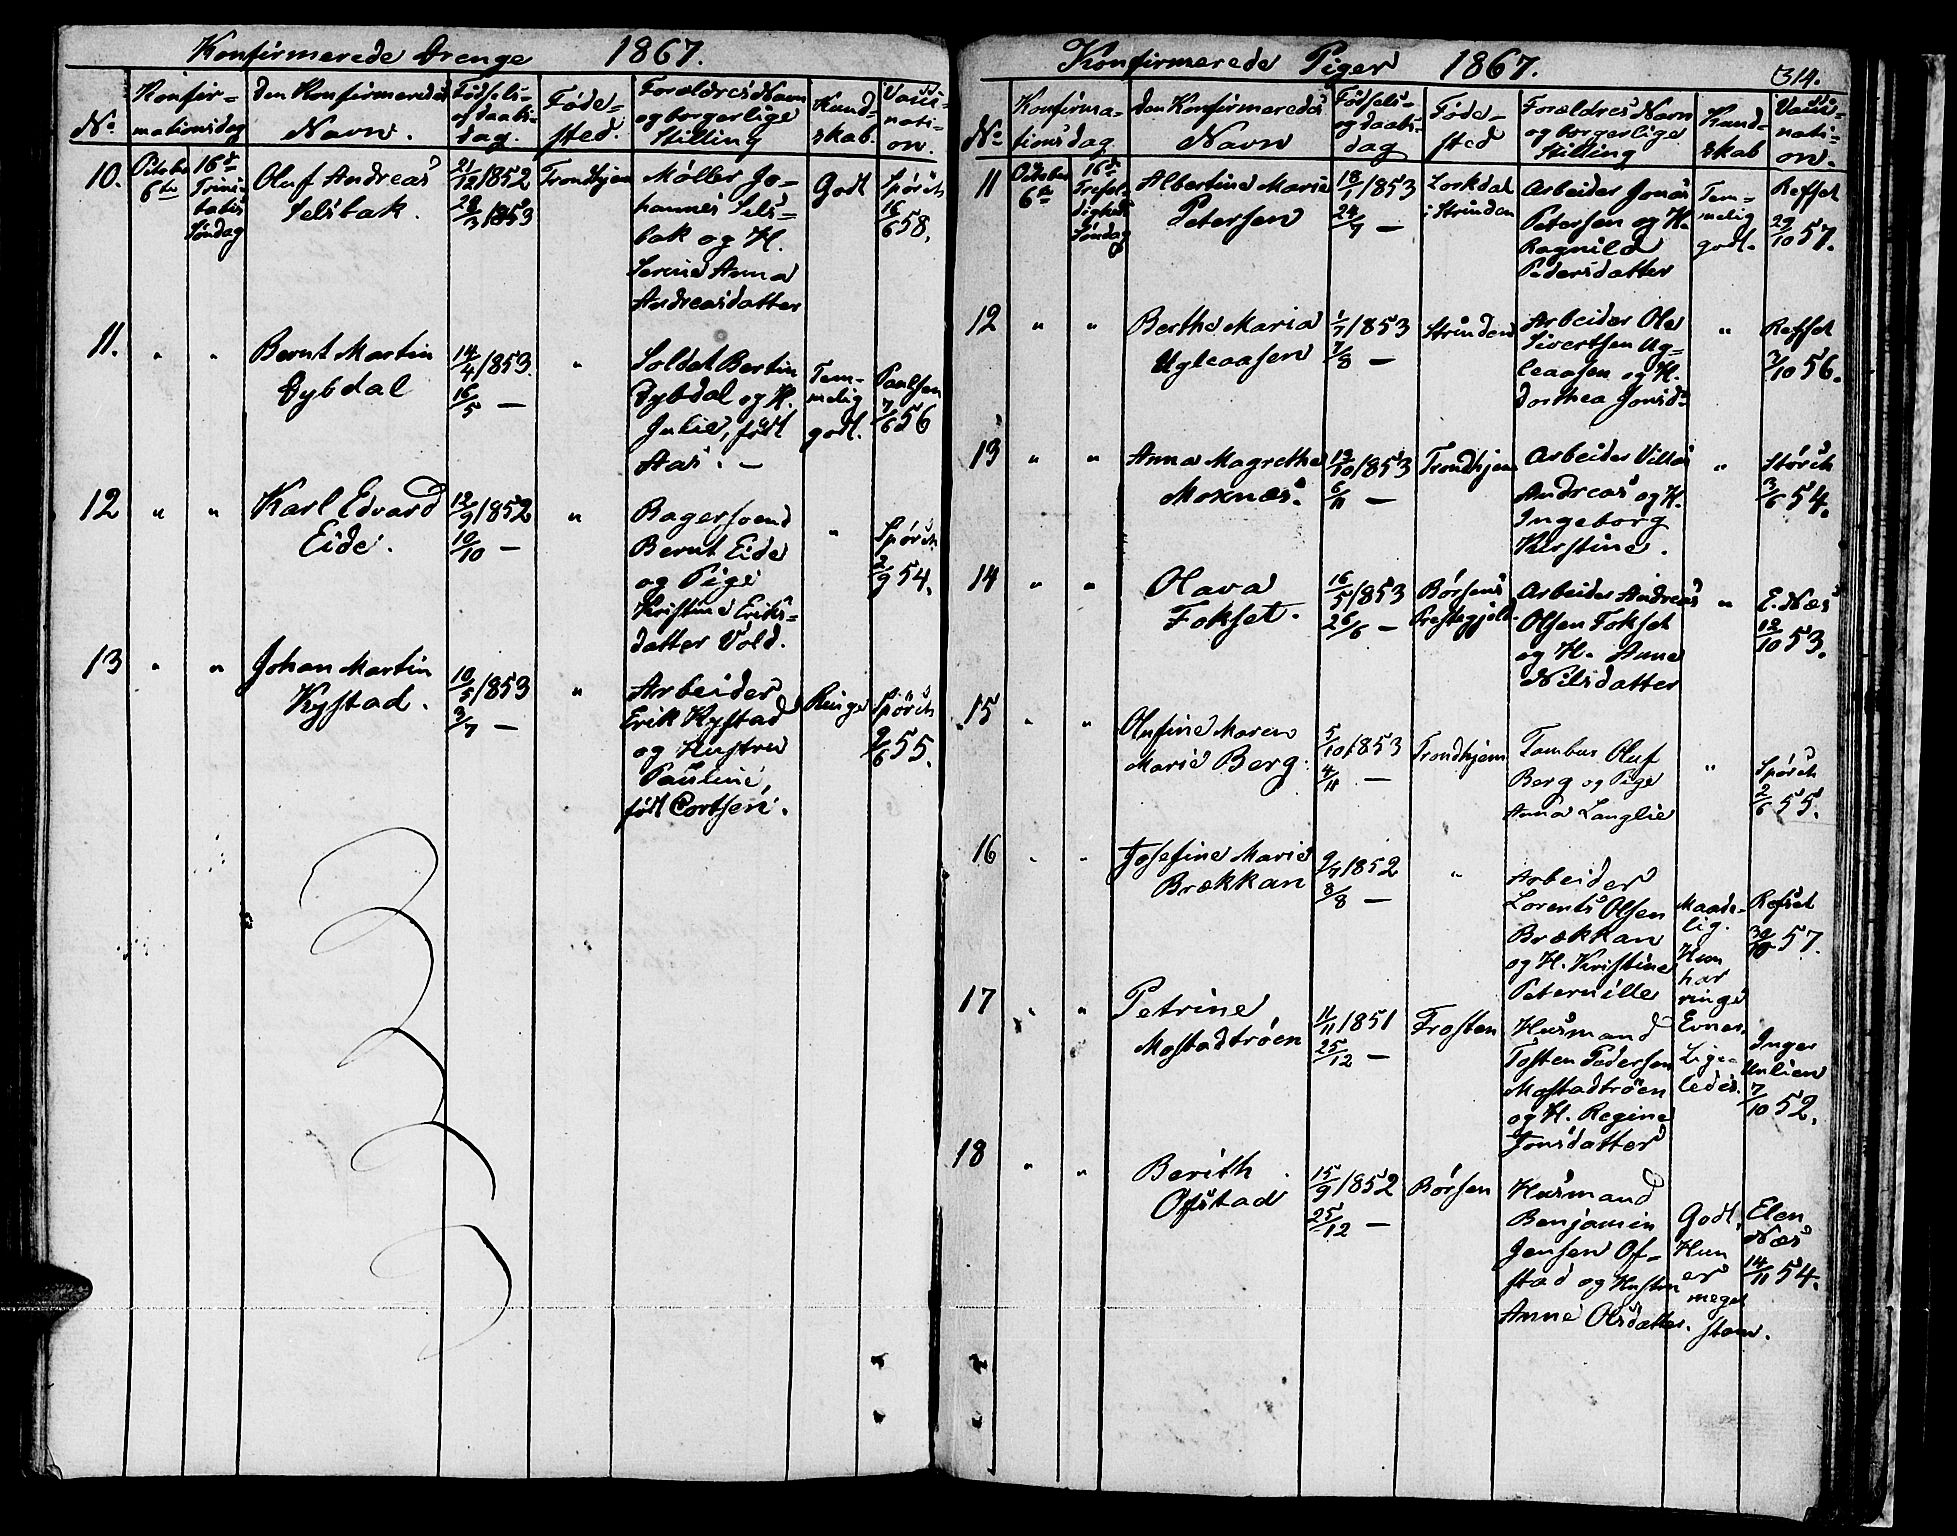 Konfirmerede Drenge 1867.
No Konfirmationsdag Den Konfirmeredes Navn. Fødsels- og Daabsdag. Fødested. Forældres Navn og borgerlige Stilling Kundskab. Vaccination.
10. Oktober 6te 16de Trinitatis Søndag Oluf Andreas Selsbak. 21/12 1852 28/3 1853 Trondhjem Møller Johannes Selsbak og H. Serine Anna Andreasdatter Godt Spörck 16/6 58.
11. " " Bernt Martin Dybdal 14/4 1853. 16/5 — " Soldat Bertin Dybdal og H. Julie, født Aas. — Temmelig godt. Paulsen 7/6 56
12 " " Karl Edvard Eide. 12/9 1852 10/10 — " Bagersvend Bernt Eide og Pige Kristine Eriksdatter Vold. " Spörck 2/9 54.
13 " " Johan Martin Kystad. 10/5 1853 3/7 — " Arbeider Erik Kystad og Hustru Pauline, født Cortsen. Ringe Spörck 9/6 55.
Konfirmerede Piger 1867. 314.
No Konfirmationsdag. Den Konfirmeredes Navn Fødsels- og Daabsdag Fødested Forældres Navn og borgerlige Stilling Kundskab Vaccination.
11 Oktober 6te 16de Trefoldigheds Søndag Albertine Marie Petersen 18/1 1853 24/7 — i Strinden Arbeider Jonas Petersen og H. Ragnild Pedersdatter Temmelig godt. Refset 29/10 57.
12 " " Berthe Maria Ugleaasen 1/7 1853 7/8 — Strinden Arbeider Ole Sivertsen Ugleaasen og H. Dorthea Jonsd. " Refset 3/10 56.
13 " " Anna Magrethe Moxnæs. 12/10 1853 6/11 — Trondhjem Arbeider Andreas og H. Ingeborg Kirstine. " Störck 3/6 54.
14 " " Olava Fokset. 16/5 1853 26/6 — Børsens Prestegjeld. Arbeider Andreas Olsen Fokset og H. Anne Nilsdatter " E. Næs 12/10 53.
15 " " Olufine Maren Marie Berg. 5/10 1853 4/11 — Trondhjem Tambur Oluf Berg og Pige Anna Langlie " Spörck 2/6 55.
16 " " Josefine Marie Brækkan 9/7 1852 8/8 — " Arbeider Lorents Olsen Brækkan og H. Kristine Peternille Maadelig. Hun har ringe Evner. Refset 30/10 57.
17 " " Petrine Mostadtrøen 11/11 1851 25/12 — Frosten Husmand Tosten Pedersen Mostadtrøen og H. Regine Jonsdatter Ligeledes. Inger Unlien 7/10 52.
18 " " Berith Ofstad 15/9 1852 25/12 — Børsen Husmand Benjamin Jensen Ofstad og Hustru Anne Olsdatter. Godt. Hun er meget Elen Næs 14/11 54.